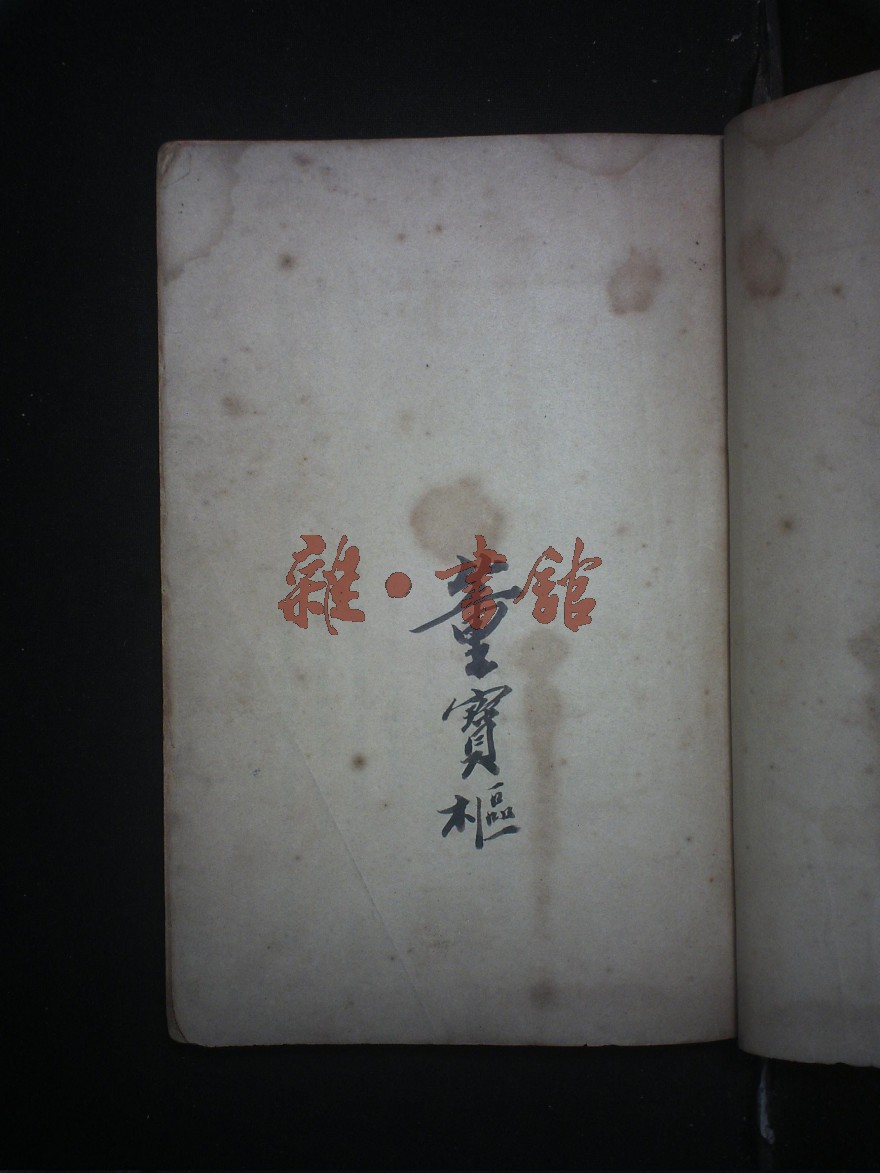 雜·書館
董寶樞